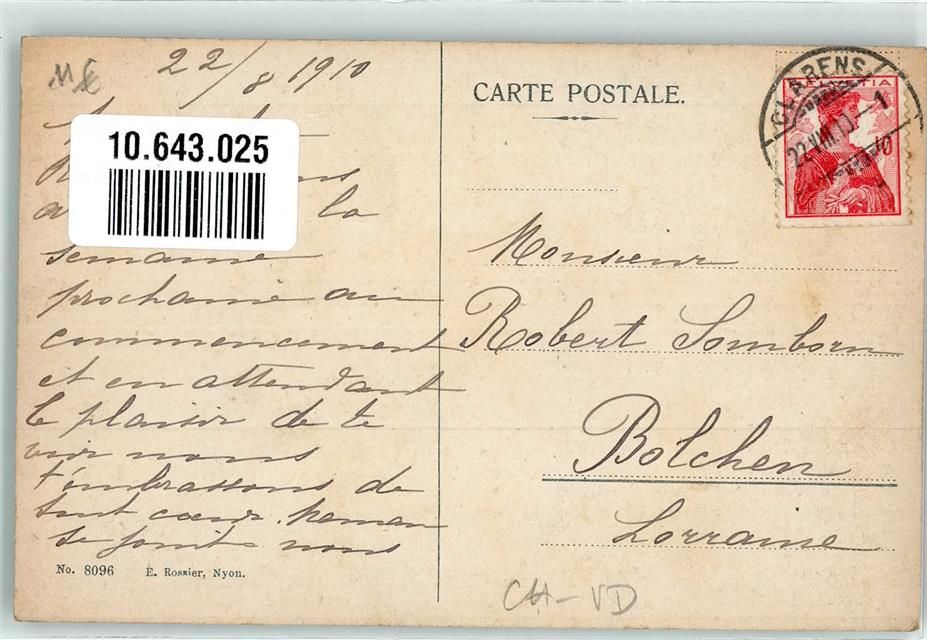 22/8 1910
10.643.025
la
semaine
prochaine au
commencement
et en attendant
le plaisir de te
voir nous
t'embrassons de
tout cœur. Maman
se joint à nous
No. 8096 E. Rossier, Nyon.
CARTE POSTALE.
CLARENS
22.VIII.10 - 1
HELVETIA
10
Monsieur
Robert Somborn
Bolchen
Lorraine
CH-VD